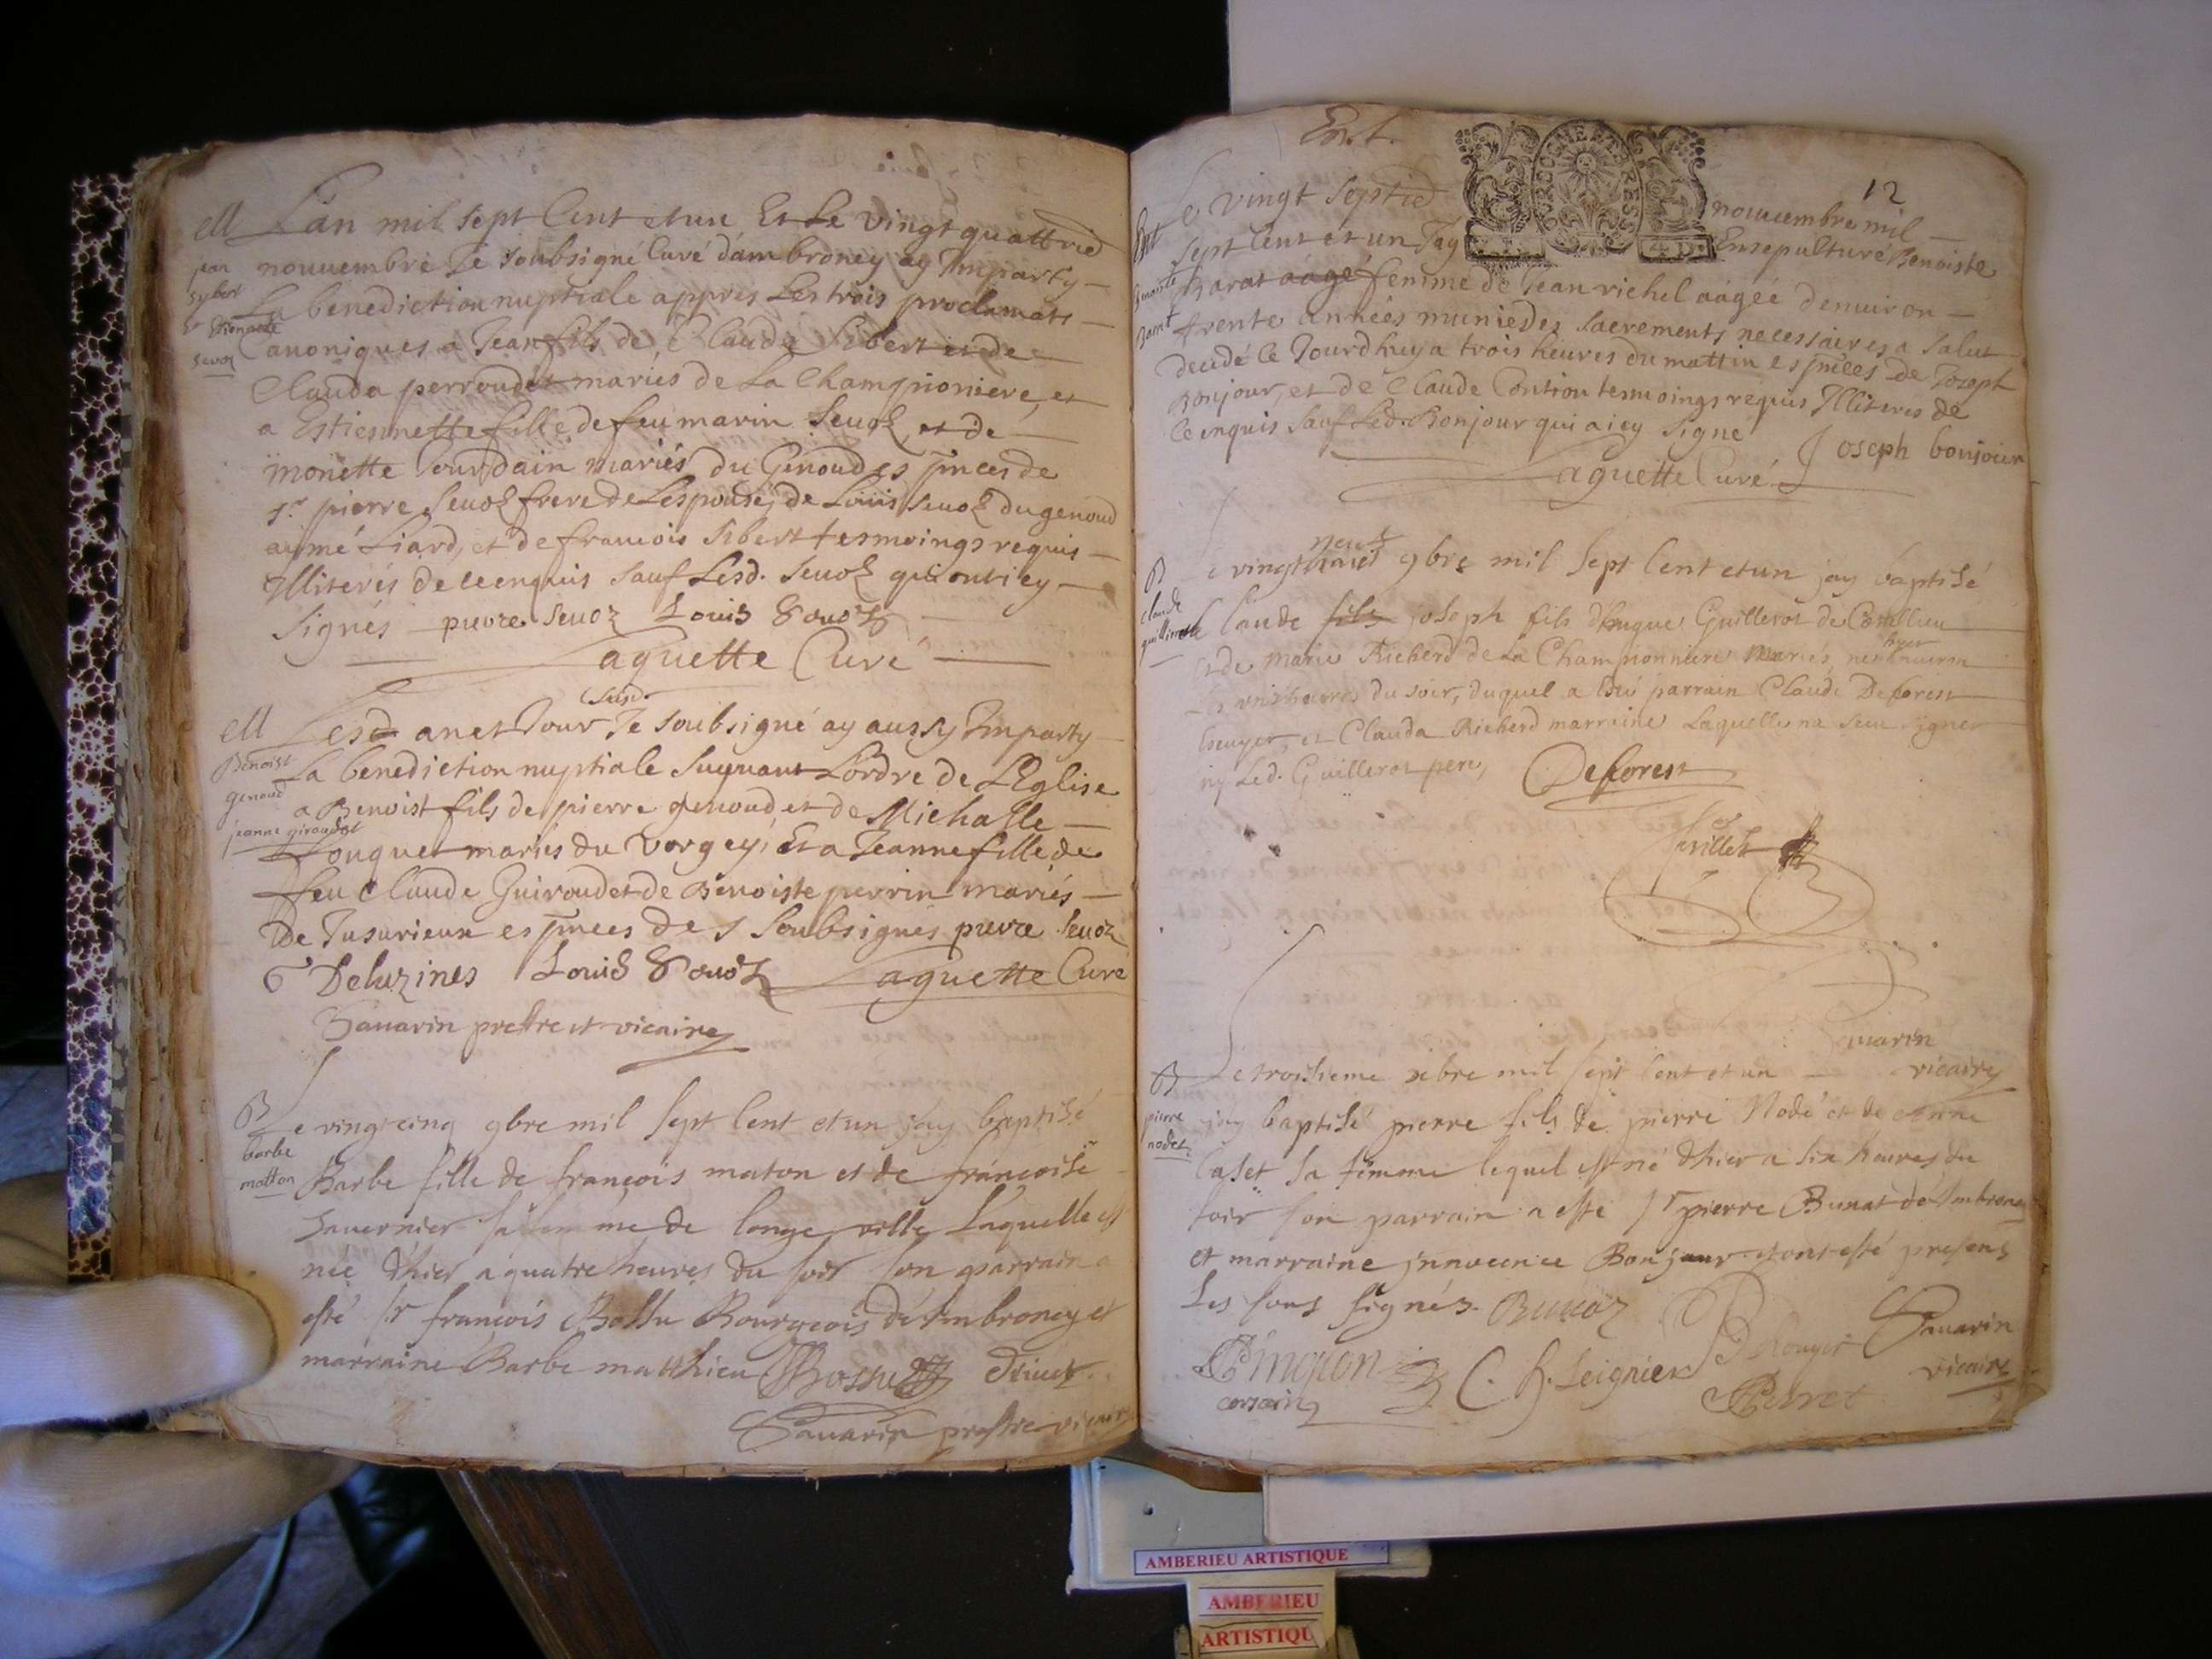 M L'an mil sept Cent et un Et Le vingt quattried
nouuembre Je soubsigné Curé d'ambroney ay Imparty
jean
sybert
La benediction nuptiale appres Les trois proclamatt
Estiennette
seuoz
Canoniques a Jean fils de Claude Sibert et de
Clauda perroudet mariés de La Championiere, et
a Estiennette fille de feu marin Seuoz, et de
monette Jourdain mariés du Genoud es pnces de
Sr pierre Seuoz frere de Lespousé, de Loüis Seuoz du genoud
aymé Liard, et de francois Sibert tesmoings requis
Illiterés de ce enquis sauf Lesd. Seuoz qui ont icy
Signés pierre seuoz Louis Seuoz
Laguette Curé
M Lesd an et Jour susd. Je soubsigné ay aussy Imparty
Benoist
genoud
La benediction nuptiale suyuant Lordre de LEglise
a Benoist fils de pierre genoud et de Michalle
jeanne giroudet
Fouquet mariés du Vorgey, Et a Jeanne fille de
feu Claude Guiroudet de Benoiste perrin mariés
De Jusurieux es pnces des Soubsignés pierre seuoz
Deluzines Louis Seuoz Laguette Curé
Sauarin prestre et vicaire
B Le vingt cinq 9bre mil sept Cent et un jay baptisé
barbe
matton
Barbe fille de françois maton et de françoise
Sauernier sa femme de longe ville Laquelle est
née d'hier a quatre heures du soir son parrain a
esté Sr françois Bossu Bourgeois d'Ambroney et
marraine Barbe matthieu Bossu
Sauarin prestre vicaire
Ent.
12
Le vingt septied nouuembre mil
Ent
sept Cent et un Jay Ensepulturé Benoiste
Benoiste
Barat
Barat aagé femme de Jean richel aagéé denuiron
trente années munie des sacrements necessaires a salut
decedé ce Jourdhuy a trois heures du mattin es pnces de Joseph
Bonjour, et de Claude Contion tesmoings requis Illiterés de
ce enquis sauf Led. Bonjour qui a icy signé Joseph bonjour
Laguette Curé
B Le vingt neuf 9bre mil sept Cent et un jay baptisé
claude
guillerot
Claude fils joseph fils d'hugue Guillerot de
et de Marie Richerd de La Championniere mariés, né hyer enuiron
Les heures du soir, duquel a esté parrain Claude Deforest
Escuyer, et Clauda Richerd marraine Laquelle na sceu signer
ny Led. Guillerot pere, Deforest
Sauarin
vicaire
B Le troisieme xbre mil sept Cent et un
pierre
nodet
jay baptisé pierre fils de pierre Nodé et de anne
Caset sa femme lequel est né d'hier a six heures du
soir son parrain a esté Sr pierre Bunat d'Ambroney
et marraine jnnocence Bonjour et ont esté presens
Les sous signés. Bunoz
Sauarin
vicaire
C. H. Leignier
AMBERIEU ARTISTIQUE
AMBERIEU
ARTISTIQU